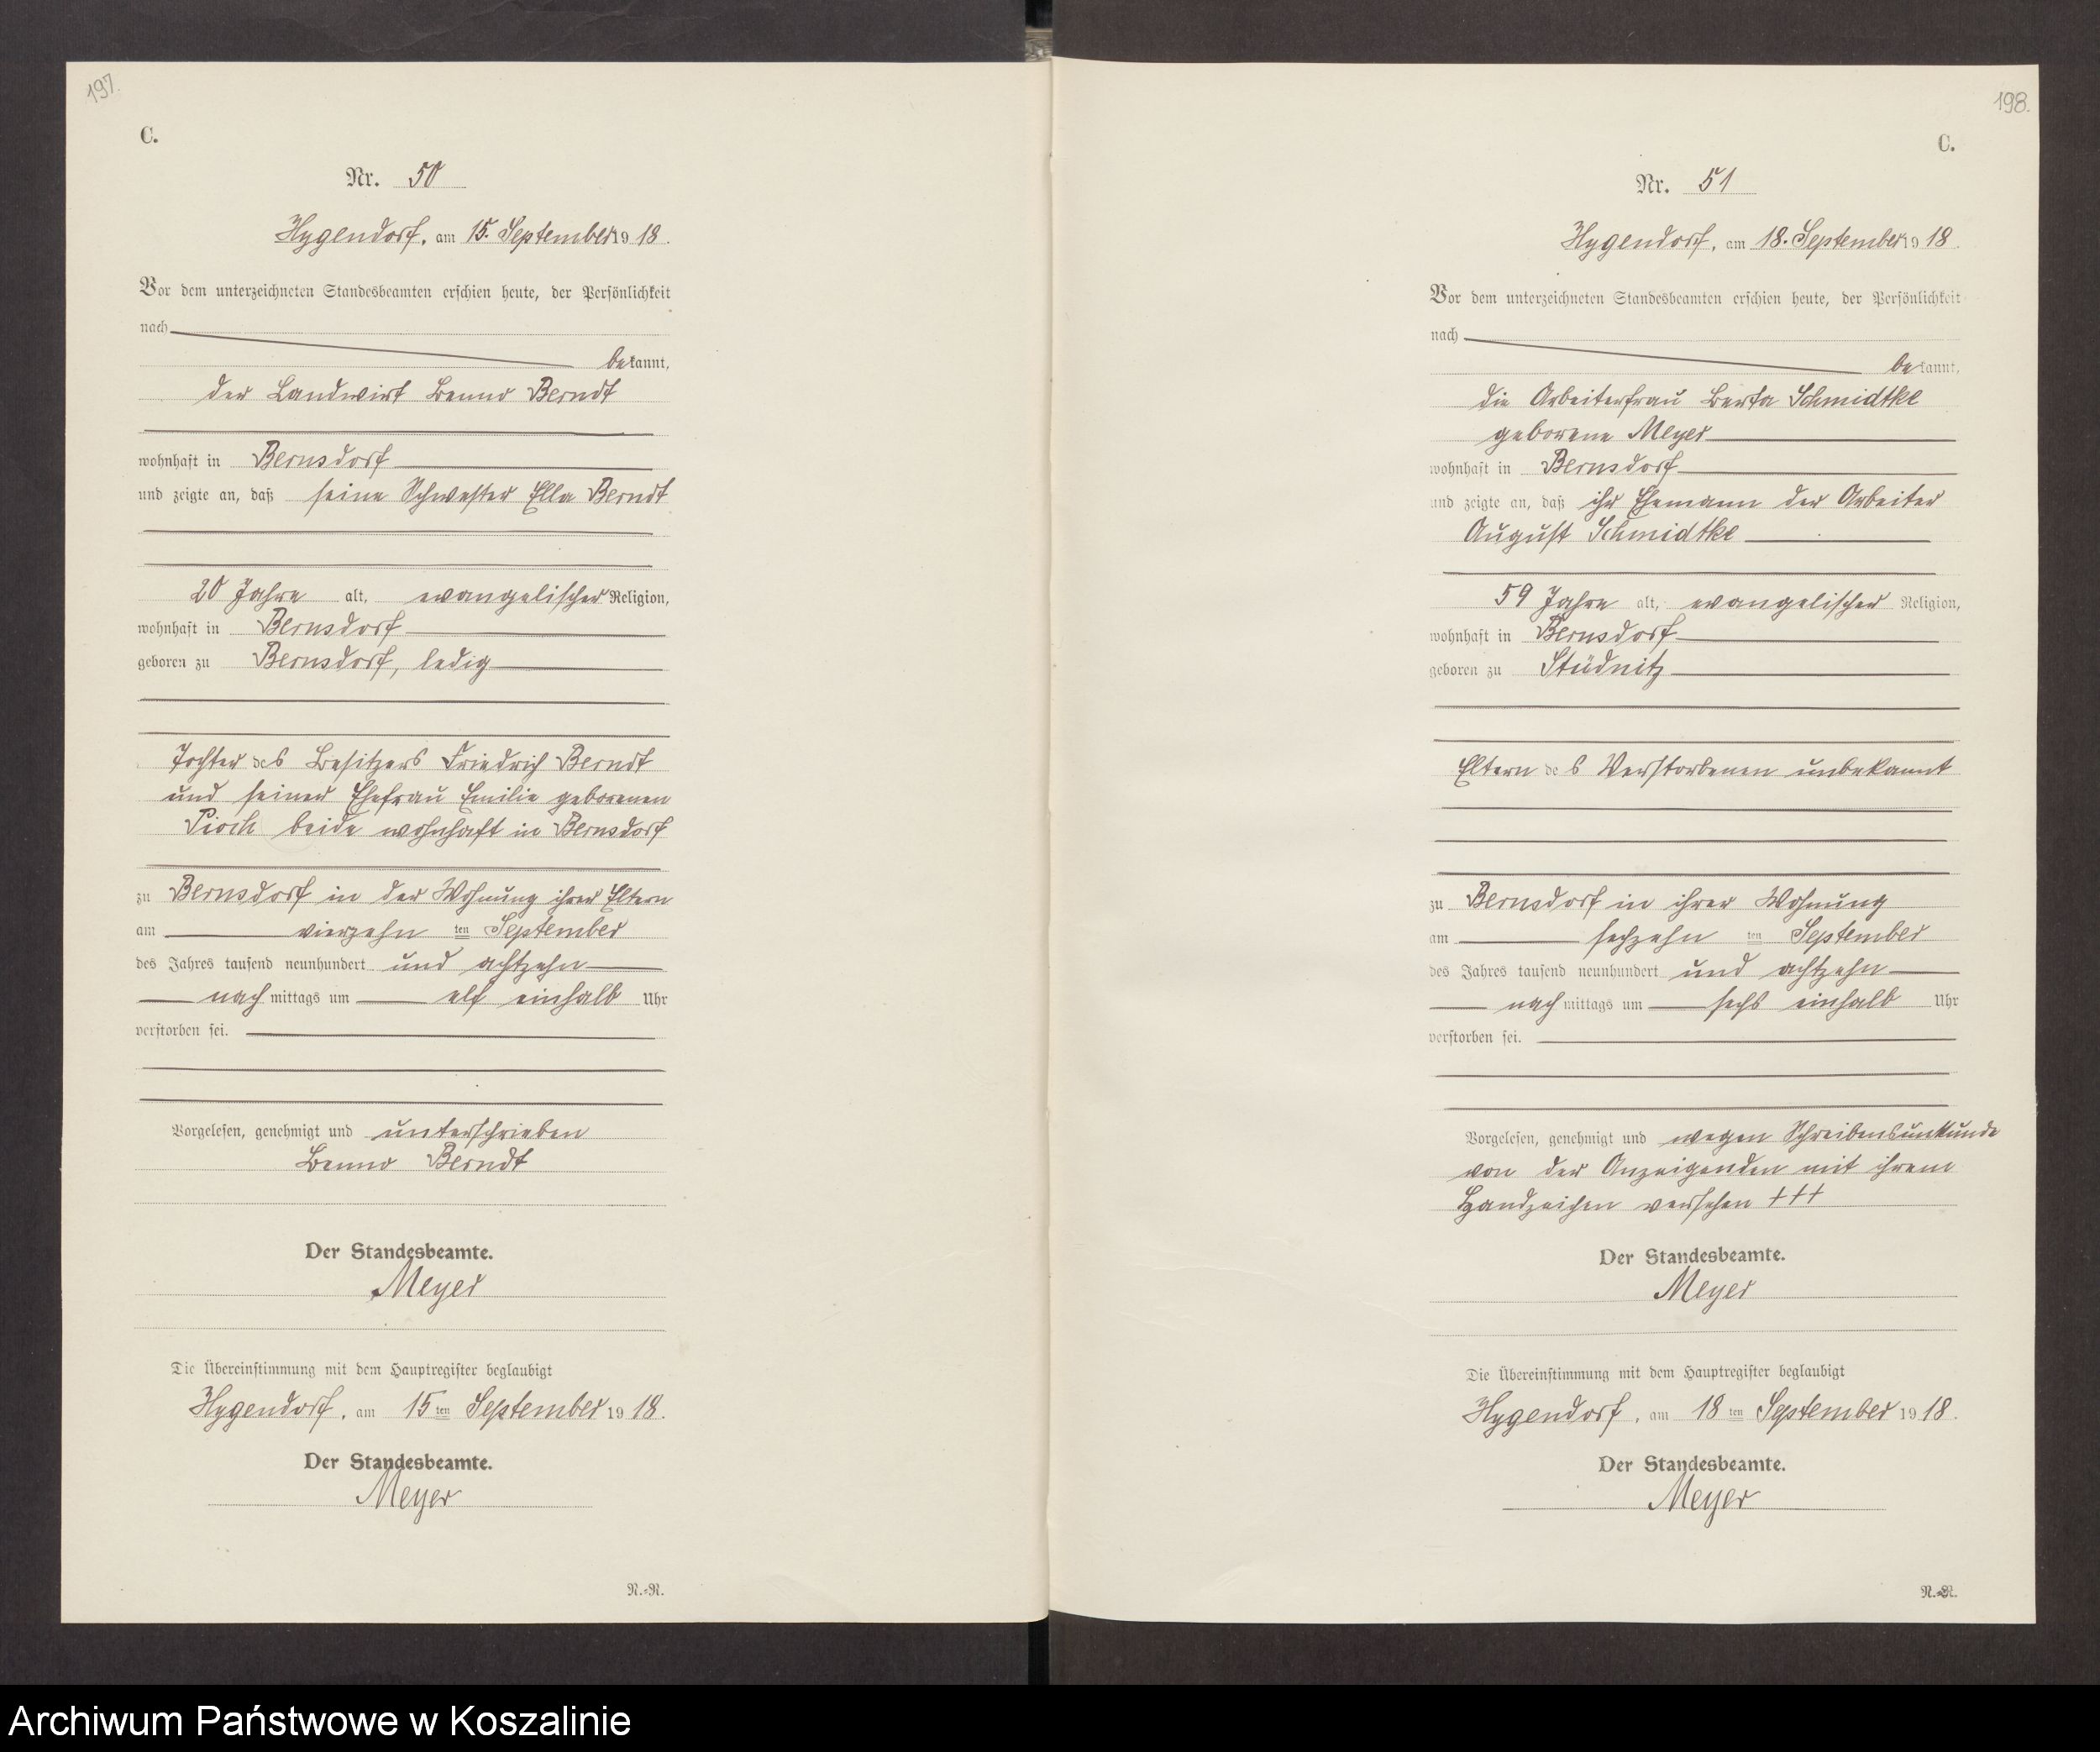 197.
C.
Nr. 50
Hygendorf, am 15. September 1918.
Vor dem unterzeichneten Standesbeamten erschien heute, der Persönlichkeit
nach
bekannt,
der Landwirt Benno Berndt
wohnhaft in Bernsdorf
und zeigte an, daß seine Schwester Ella Berndt
20 Jahre alt, evangelischer Religion,
wohnhaft in Bernsdorf
geboren zu Bernsdorf, ledig
Tochter des Besitzers Friedrich Berndt
und seiner Ehefrau Emilie geborenen
Pioch beide wohnhaft in Bernsdorf
zu Bernsdorf in der Wohnung ihrer Eltern
am vierzehn ten September
des Jahres tausend neunhundert und achtzehn
nachmittags um elf einhalb Uhr
verstorben sei.
Vorgelesen, genehmigt und unterschrieben
Benno Berndt
Der Standesbeamte.
Meyer
Die Übereinstimmung mit dem Hauptregister beglaubigt
Hygendorf, am 15ten September 1918.
Der Standesbeamte.
Meyer
N.=R.
198.
C.
Nr. 51
Hygendorf, am 18. September 1918.
Vor dem unterzeichneten Standesbeamten erschien heute, der Persönlichkeit
nach
bekannt,
die Arbeiterfrau Berta Schmidtke
geborene Meyer
wohnhaft in Bernsdorf
und zeigte an, daß ihr Ehemann der Arbeiter
August Schmidtke
59 Jahre alt, evangelischer Religion,
wohnhaft in Bernsdorf
geboren zu Stüdnitz
Eltern des Verstorbenen unbekannt
zu Bernsdorf in ihrer Wohnung
am sechzehn ten September
des Jahres tausend neunhundert und achtzehn
nachmittags um sechs einhalb Uhr
verstorben sei.
Vorgelesen, genehmigt und wegen Schreibensunkunde
von der Anzeigenden mit ihrem
Handzeichen versehen +++
Der Standesbeamte.
Meyer
Die Übereinstimmung mit dem Hauptregister beglaubigt
Hygendorf, am 18ten September 1918.
Der Standesbeamte.
Meyer
N.=R.
Archiwum Państwowe w Koszalinie